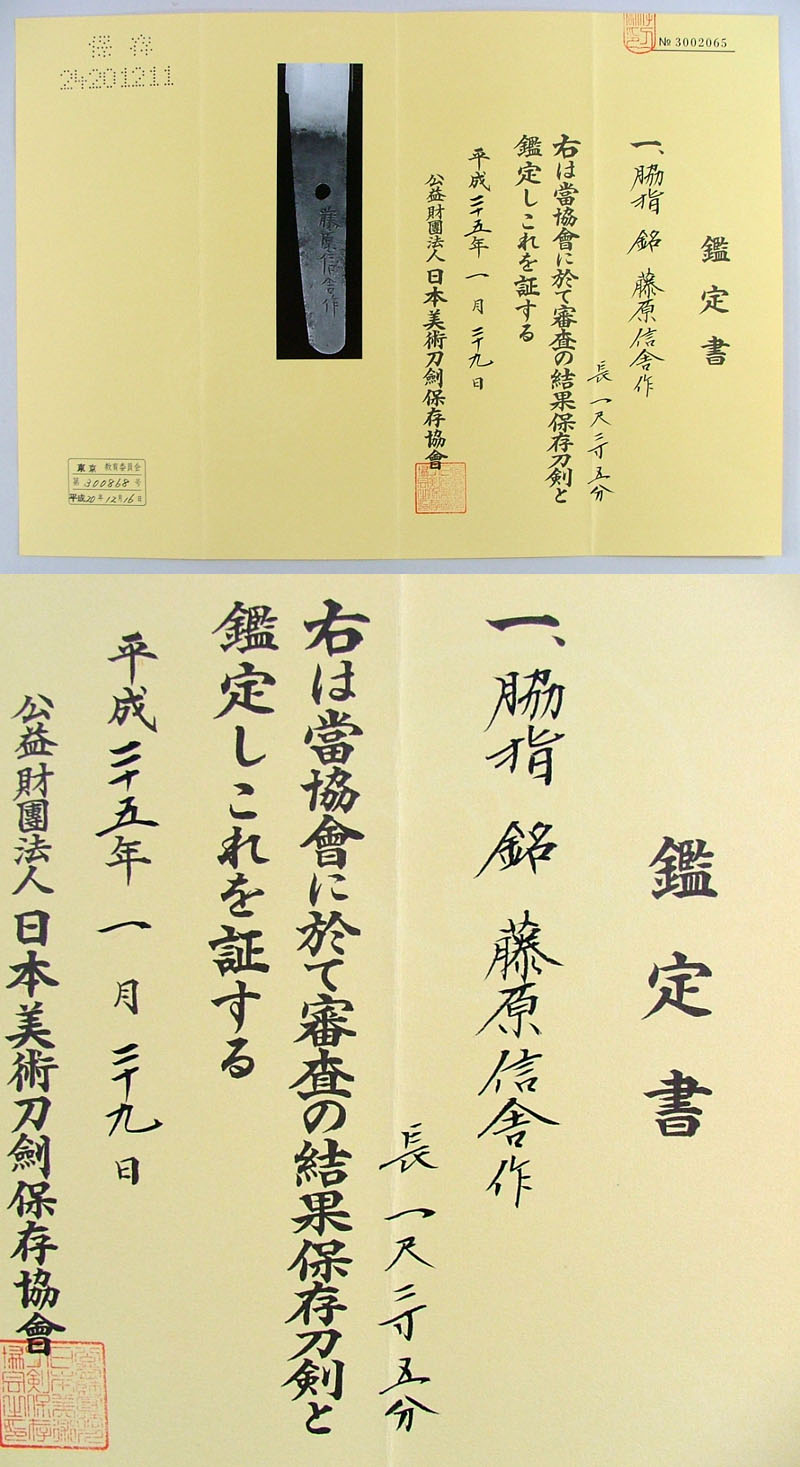 № 3002065
鑑定書
一、脇指 銘 藤原信舎作
長 一尺二寸五分
右は當協會に於て審査の結果保存刀剣と
鑑定しこれを証する
平成二十五年一月二十九日
公益財團法人 日本美術刀劍保存協會
藤原信舎作
保存
24201211
東京 教育委員会
第 300868 号
平成20年12月16日
鑑定書
一、脇指 銘 藤原信舎作
長 一尺二寸五分
右は當協會に於て審査の結果保存刀剣と
鑑定しこれを証する
平成二十五年一月二十九日
公益財團法人 日本美術刀劍保存協會